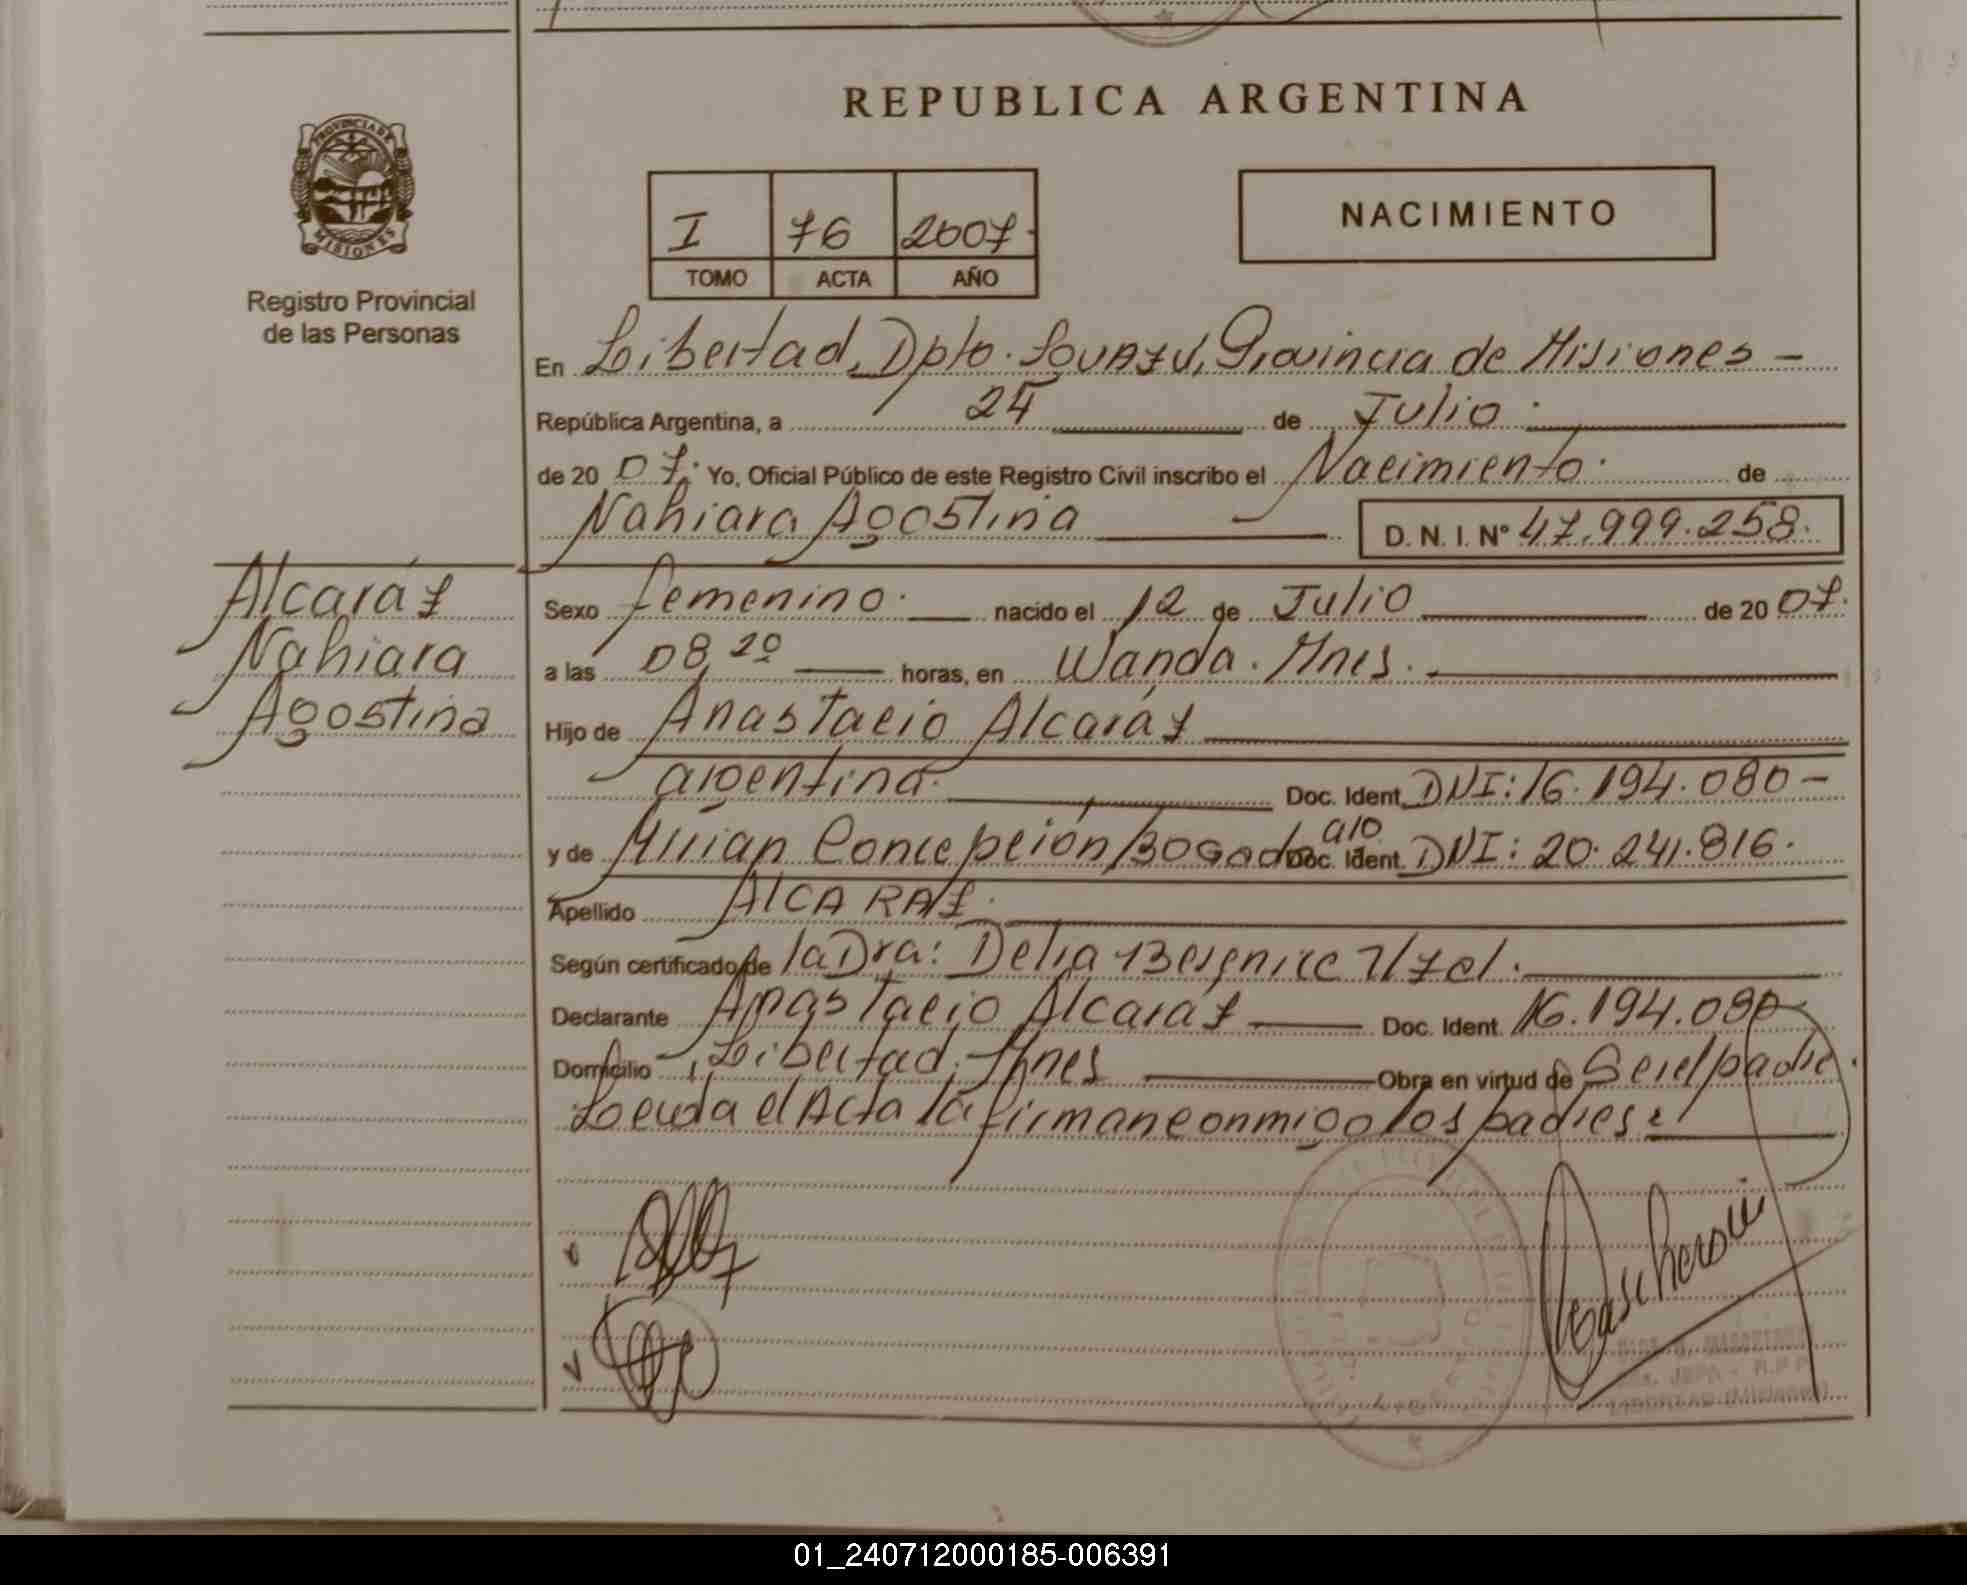 REPUBLICA ARGENTINA
PROVINCIA DE
MISIONES
Registro Provincial
de las Personas
I 76 2007.
TOMO ACTA AÑO
NACIMIENTO
En Libertad, Dpto. Iguazú, Provincia de Misiones -
República Argentina, a 24 de Julio.
de 20 07. Yo, Oficial Público de este Registro Civil inscribo el Nacimiento. de
Nahiara Agostina D. N. I. Nº 47.999.258.
Alcaráz
Nahiara
Agostina
Sexo femenino. nacido el 12 de Julio de 20 07.
a las 08,20 horas, en Wanda. Mnes.
Hijo de Anastacio Alcaráz
argentina. Doc. Ident. DNI: 16.194.080 -
y de Mirian Concepción Bogado arg Doc. Ident. DNI: 20.241.816.
Apellido ALCARAZ.
Según certificado de la Dra: Delia
Declarante Anastacio Alcaráz Doc. Ident. 16.194.080
Domicilio Libertad, Mnes Obra en virtud de Ser el padre.
Leida el Acta la firman conmigo los padres:
LIBERTAD (Misiones)
01_240712000185-006391